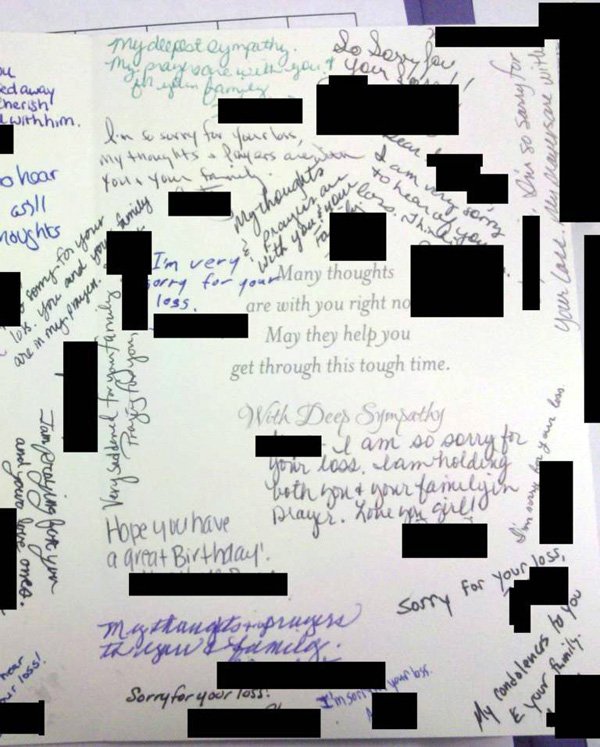 My deepest sympathy.
My prayers are with you &
your family
So Sorry for
your loss!!
I'm so sorry for your loss,
my thoughts & Prayers are with
you & your family.
I'm so sorry for
your loss. My prayers are with
I am very sorry
to hear of your
loss.
My thoughts
& prayers are
with you & your
ed away
cherish
with him.
o hear
as!!
houghts
sorry for your
loss. you and your family
are in my prayers.
I'm very
sorry for your
loss.
Many thoughts
are with you right no
May they help you
get through this tough time.
With Deep Sympathy
I am so sorry for
your loss. I am holding
both you & your family in
prayer. Love you girl!
Very saddened for your family
Praying for you,
I am praying for you
and your love ones.
Hope you have
a great Birthday!
I'm sorry for your loss
Sorry for your loss,
My thoughts & prayers
to you & family.
My condolences to you
& your family.
hear
ur loss!
Sorry for your loss!
I'm sorry your loss.